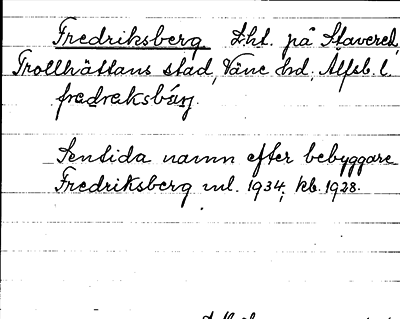 Fredriksberg Lht. på Stavered,
Trollhättans stad, Väne hd, Älfsb. l.
fredreksbárj.
Sentida namn efter bebyggare
Fredriksberg ml. 1934, kb. 1928.